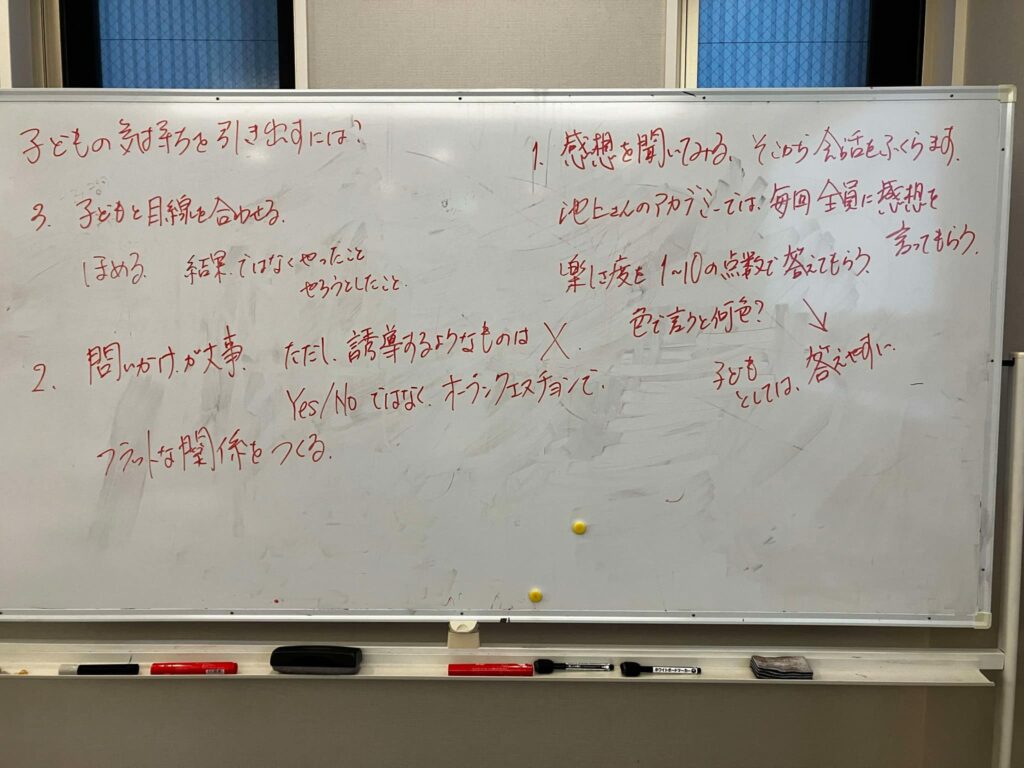 子どもの気持ちを引き出すには?
3. 子どもと目線を合わせる.
ほめる. 結果ではなくやったこと
やろうとしたこと.
2. 問いかけが大事. ただし、誘導するようなものは X.
Yes/No ではなく、オープンクエスチョンで.
フラットな関係をつくる.
1. 感想を聞いてみる、そこから会話をふくらます.
池上さんのアカデミーでは、毎回全員に感想を
言ってもらう.
楽しさ度を 1~10の点数で答えてもらう.
色で言うと何色?
↓
子ども
としては、答えやすい.
ホワイトボードマーカー